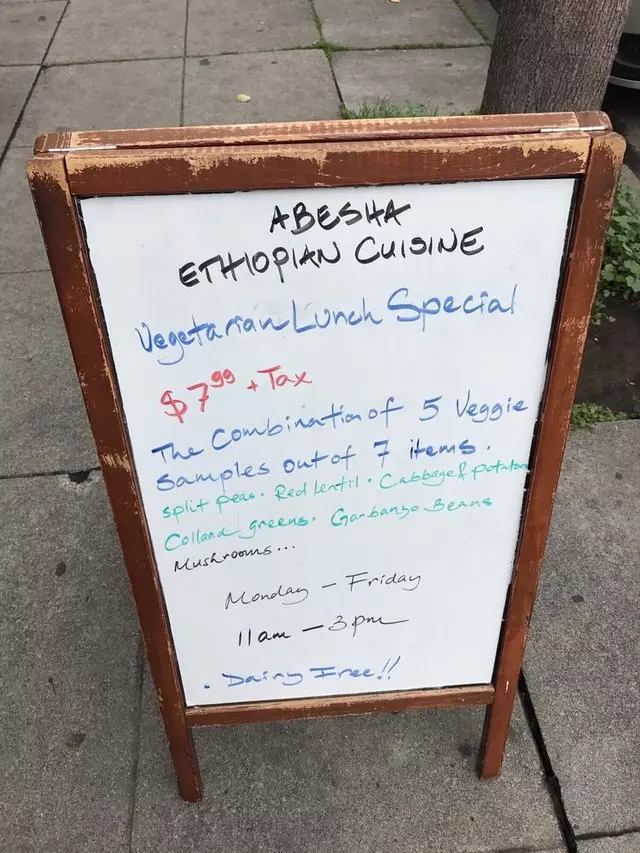 ABESHA
ETHIOPIAN CUISINE
Vegetarian Lunch Special
$7.99 + Tax
The Combination of 5 Veggie
Samples out of 7 items.
split peas. Red lentil. Cabbage & potatoes
Collard greens. Garbanzo Beans
Mushrooms...
Monday - Friday
11am - 3pm
. Dairy Free!!